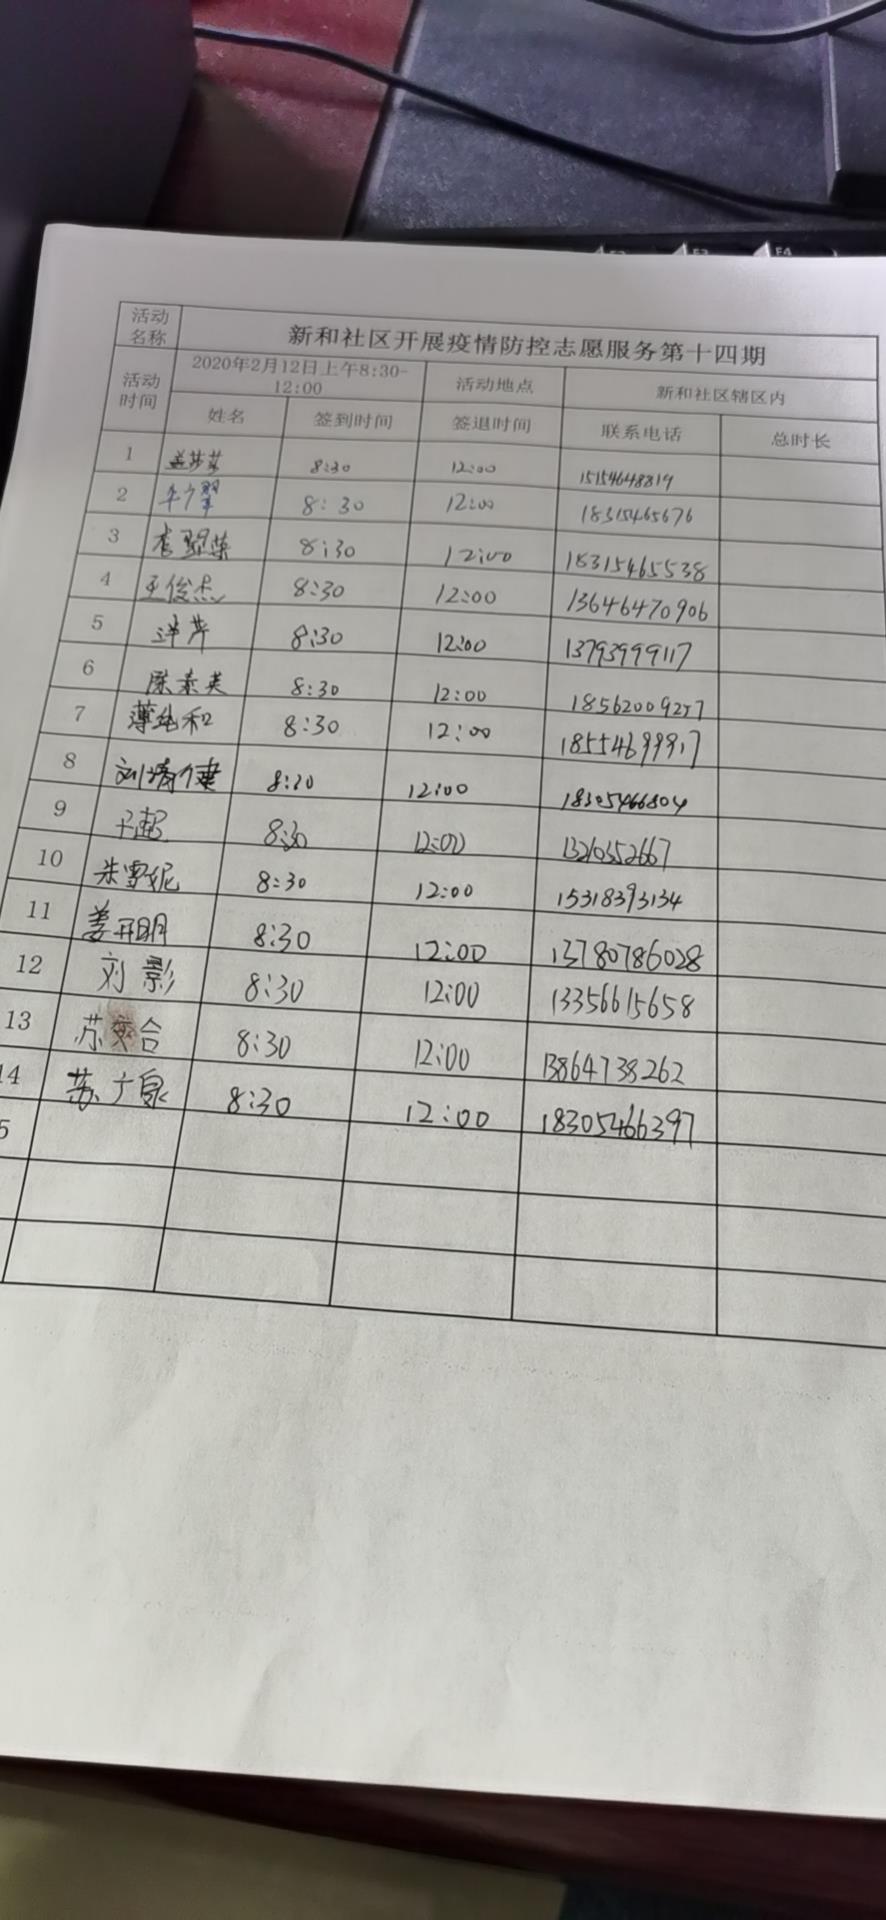 F3 F4
活动名称 新和社区开展疫情防控志愿服务第十四期
活动时间 2020年2月12日上午8:30-12:00 活动地点 新和社区辖区内
姓名 签到时间 签退时间 联系电话 总时长
1 8:30 12:00 15154648819
2 8:30 12:00 18315465676
3 8:30 12:00 18315465538
4 王俊杰 8:30 12:00 13646470906
5 8:30 12:00 13793999117
6 陈素美 8:30 12:00 18562009257
7 薄纯和 8:30 12:00 18554699917
8 刘清健 8:30 12:00 18305466804
9 8:30 12:00 13210352667
10 朱雪妮 8:30 12:00 15318393134
11 姜开明 8:30 12:00 13780786028
12 刘影 8:30 12:00 13356615658
13 苏 合 8:30 12:00 13864738262
14 苏广泉 8:30 12:00 18305466397
5